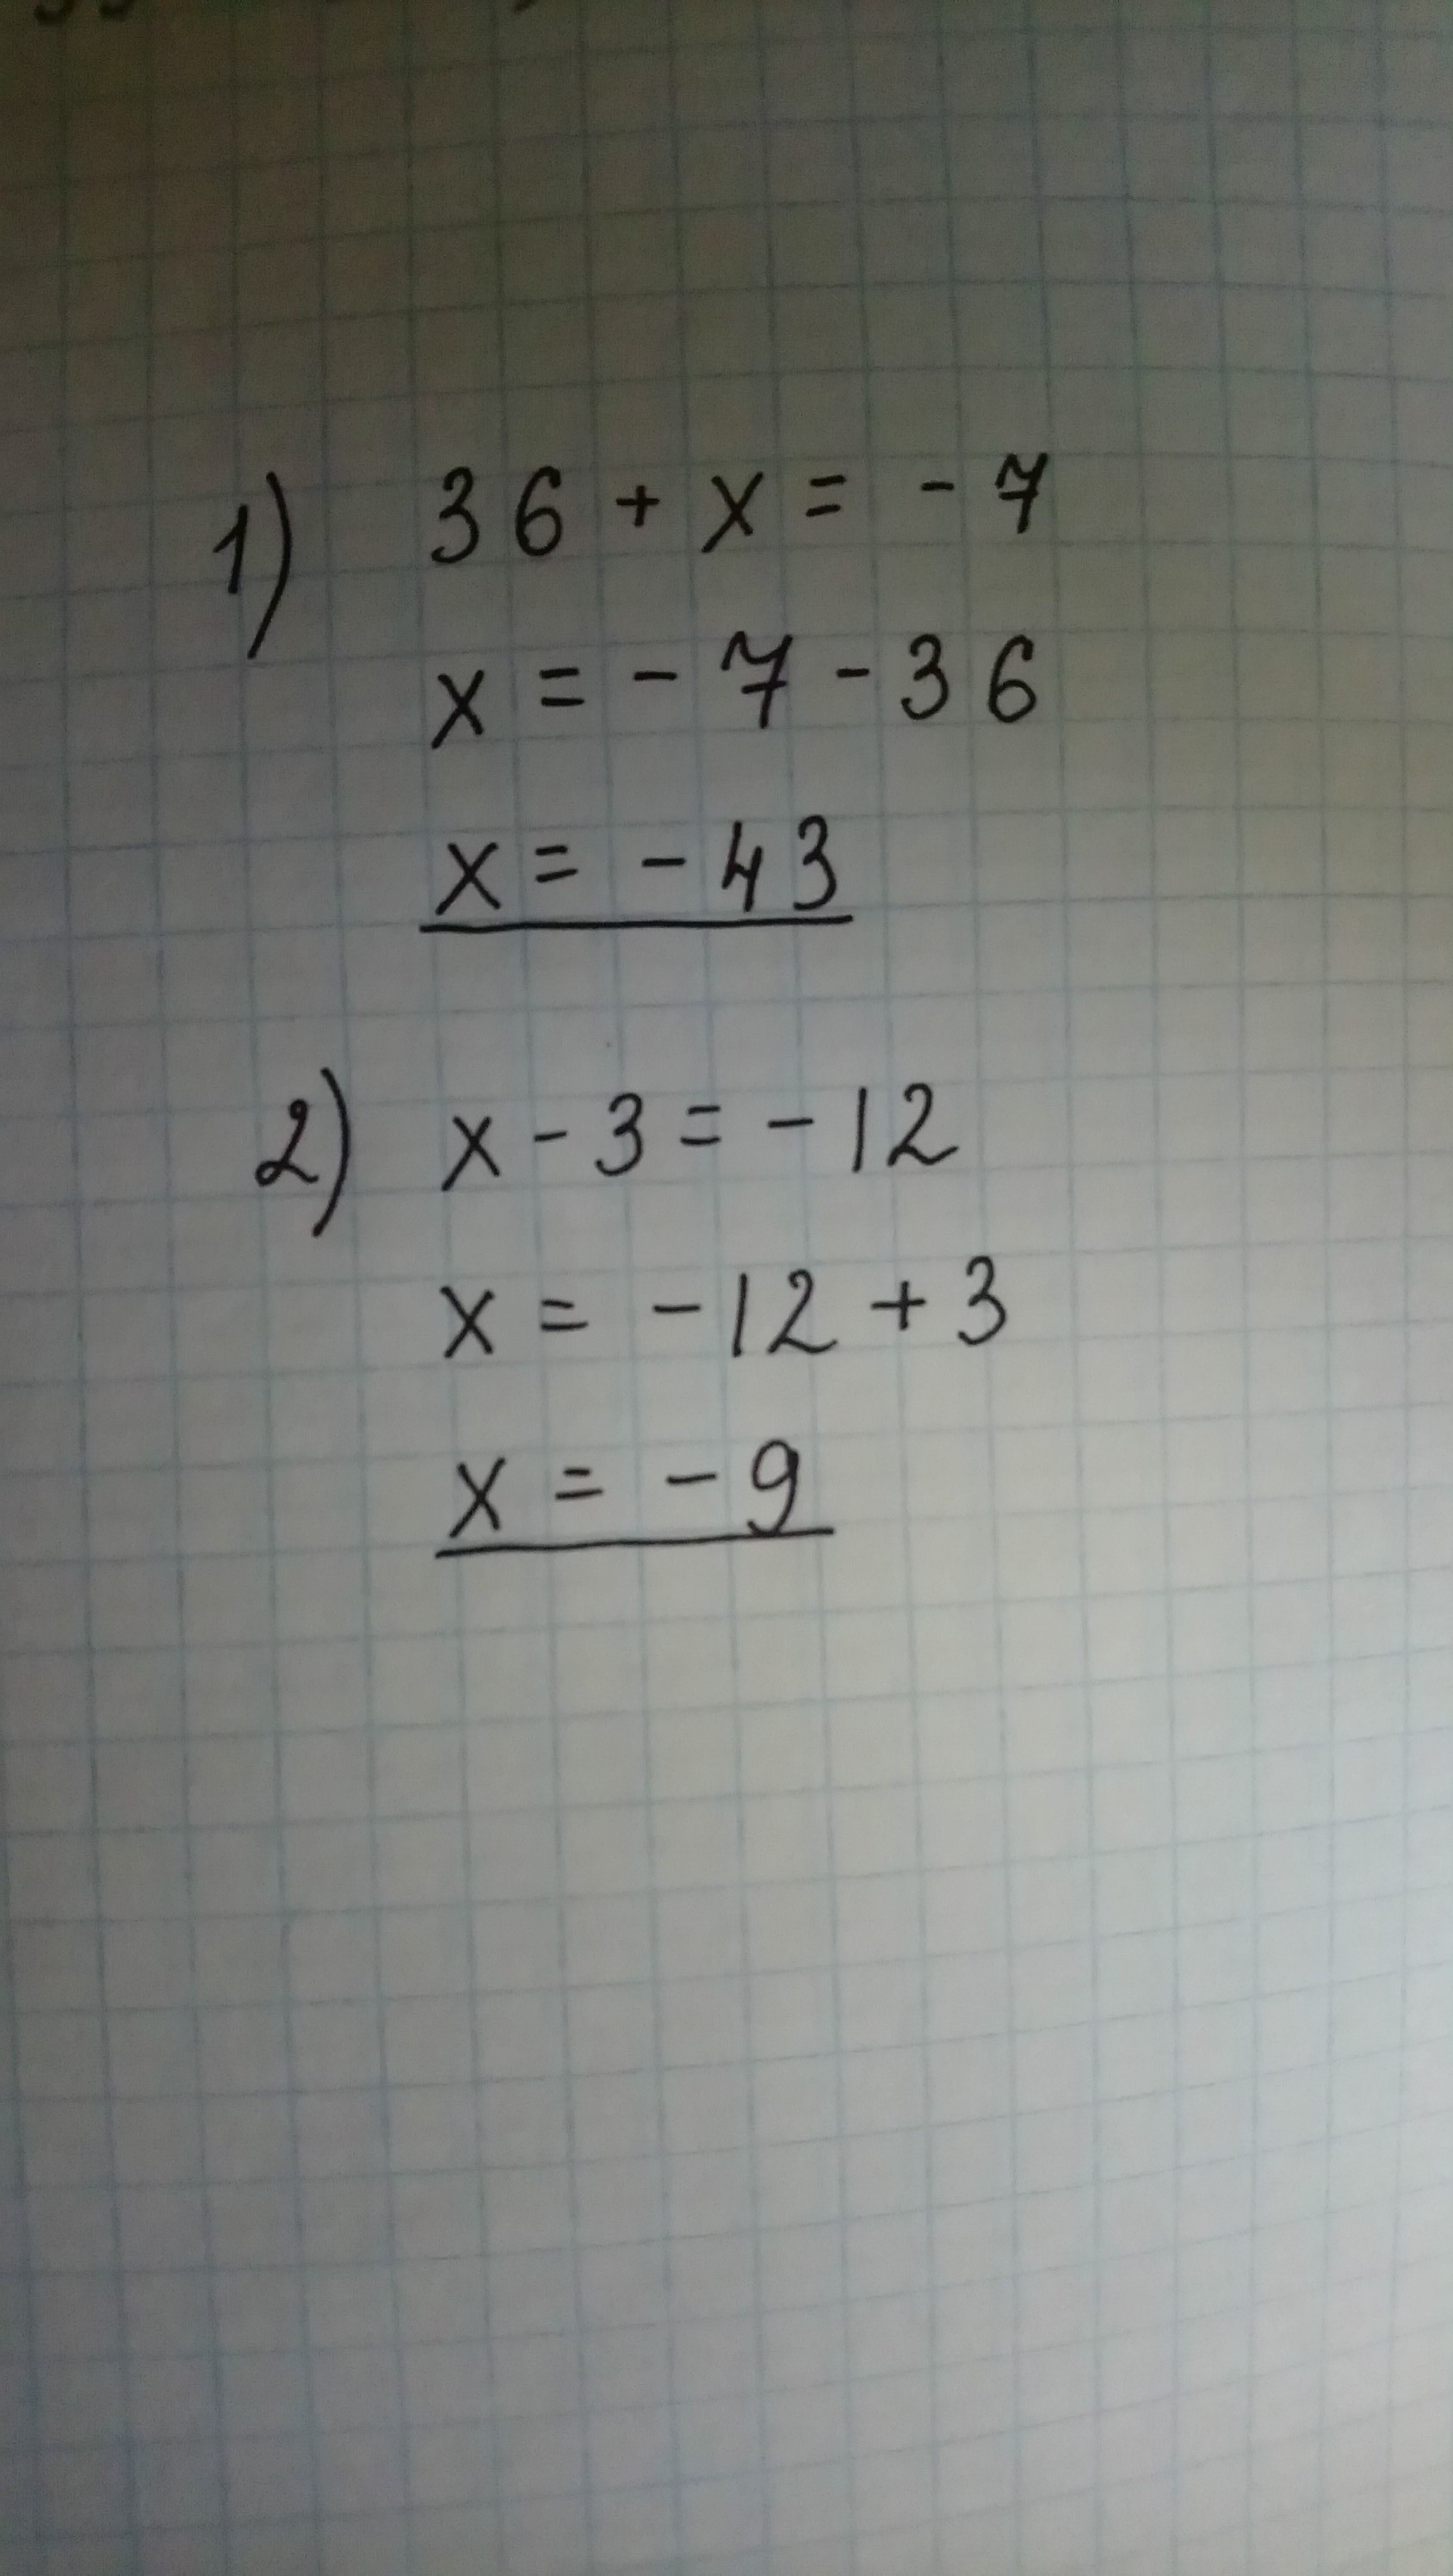 1) 36 + x = - 7
x = - 7 - 36
x = - 43
2) x - 3 = - 12
x = - 12 + 3
x = - 9